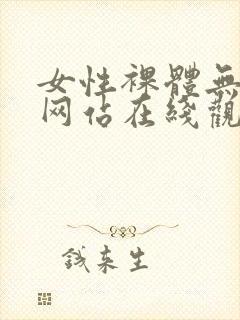 女性裸體無
网占在线觀
钱来生